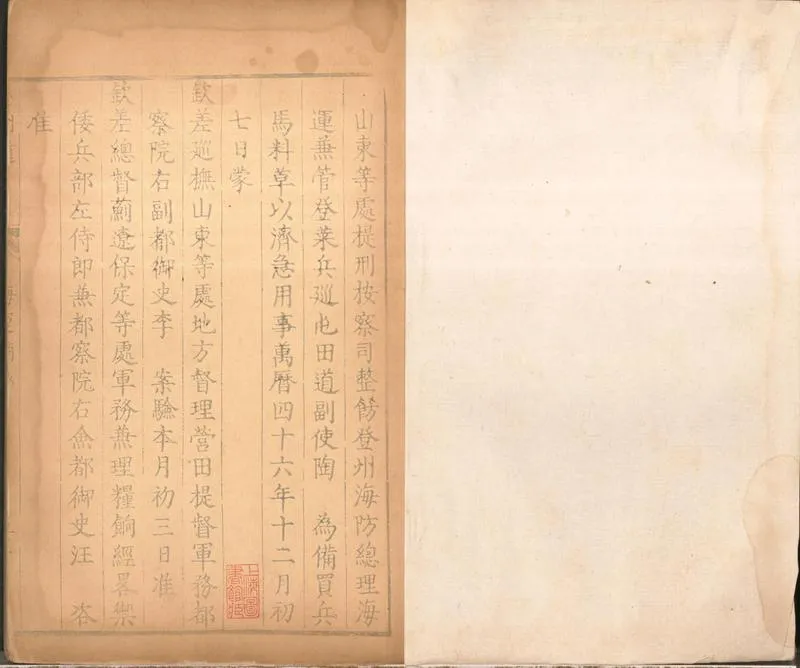 山東等處提刑按察司整飭登州海防總理海
運兼管登萊兵巡屯田道副使陶 為備買兵
馬料草以濟急用事萬曆四十六年十二月初
七日蒙
欽差巡撫山東等處地方督理營田提督軍務都
察院右副都御史李 案驗本月初三日准
欽差總督薊遼保定等處軍務兼理糧餉經畧禦
倭兵部左侍郎兼都察院右僉都御史汪 咨
准
上海圖書館藏